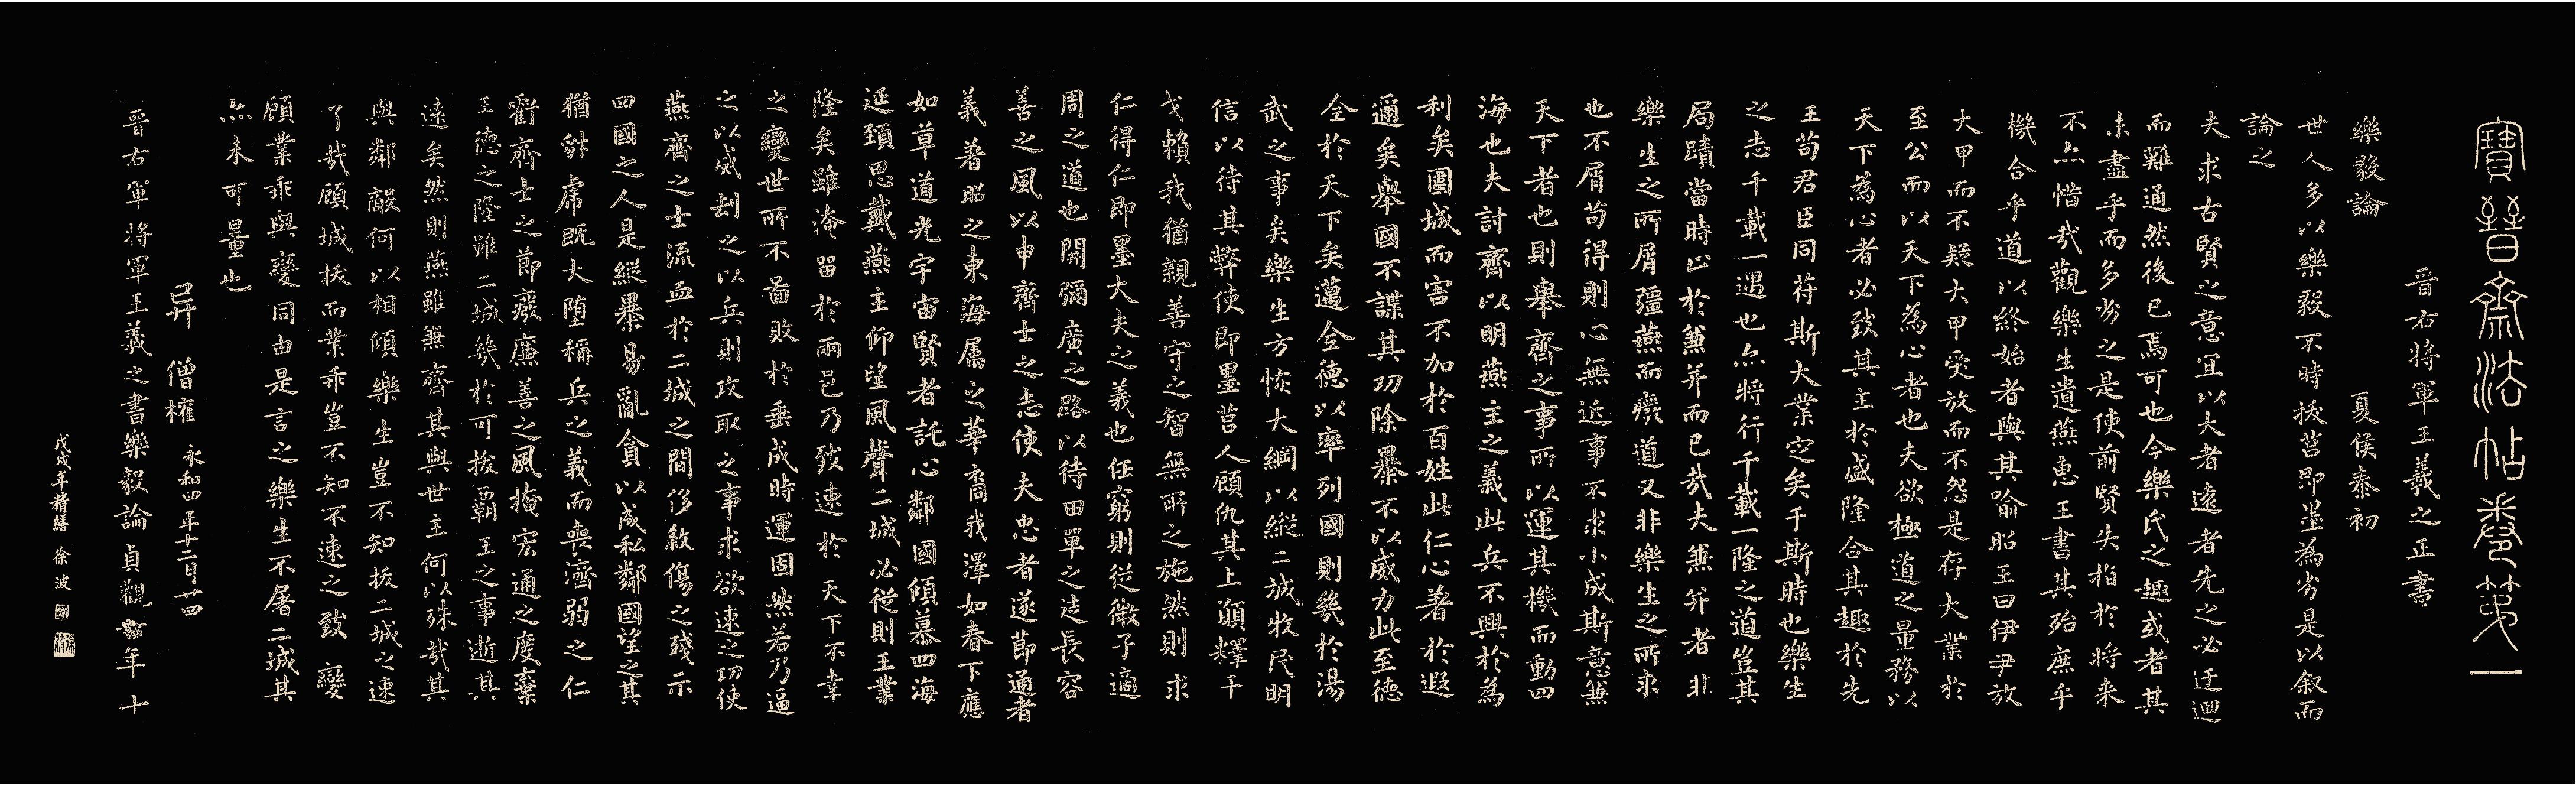 寶晉齋法帖卷第一
晉右將軍王羲之正書
樂毅論 夏侯泰初
世人多以樂毅不時拔莒即墨為劣是以叙而
論之
夫求古賢之意宜以大者遠者先之必迂迴
而難通然後已焉可也今樂氏之趣或者其
未盡乎而多劣之是使前賢失指於將来
不亦惜哉觀樂生遺燕惠王書其殆庶乎
機合乎道以終始者與其喻昭王曰伊尹放
大甲而不疑大甲受放而不怨是存大業於
至公而以天下為心者也夫欲極道之量務以
天下為心者必致其主於盛隆合其趣於先
王苟君臣同苻斯大業定矣于斯時也樂生
之志千載一遇也亦將行千載一隆之道豈其
局蹟當時止於兼并而已哉夫兼并者非
樂生之所屑彊燕而癈道又非樂生之所求
也不屑苟得則心無近事不求小成斯意兼
天下者也則舉齊之事所以運其機而動四
海也夫討齊以明燕主之義此兵不興於為
利矣圍城而害不加於百姓此仁心著於遐
邇矣舉國不謀其功除暴不以威力此至德
全於天下矣邁全德以率列國則幾於湯
武之事矣樂生方恢大綱以縱二城牧民明
信以待其弊使即墨莒人顧仇其上願釋干
戈賴我猶親善守之智無所之施然則求
仁得仁即墨大夫之義也任窮則從微子適
周之道也開彌廣之路以待田單之徒長容
善之風以申齊士之志使夫忠者遂節通者
義著昭之東海属之華裔我澤如春下應
如草道光宇宙賢者託心鄰國傾慕四海
延頸思戴燕主仰望風聲二城必從則王業
隆矣雖淹留於兩邑乃致速於天下不幸
之變世所不啚敗於垂成時運固然若乃逼
之以威刧之以兵則攻取之事求欲速之功使
燕齊之士流血於二城之間侈敘傷之殘示
四國之人是縱暴易亂貪以成私鄰國望之其
猶豺虎既大堕稱兵之義而喪濟弱之仁
虧齊士之節癈廉善之風掩宏通之度棄
王德之隆雖二城幾於可拔霸王之事逝其
遠矣然則燕雖兼齊其與世主何以殊哉其
與鄰敵何以相傾樂生豈不知拔二城之速
了哉顧城拔而業乖豈不知不速之致變
顧業乖與變同由是言之樂生不屠二城其
亦未可量也
异 僧權 永和四年十二月廿四
晉右軍將軍王羲之書樂毅論貞觀年十
戊戌年楷繕 徐波